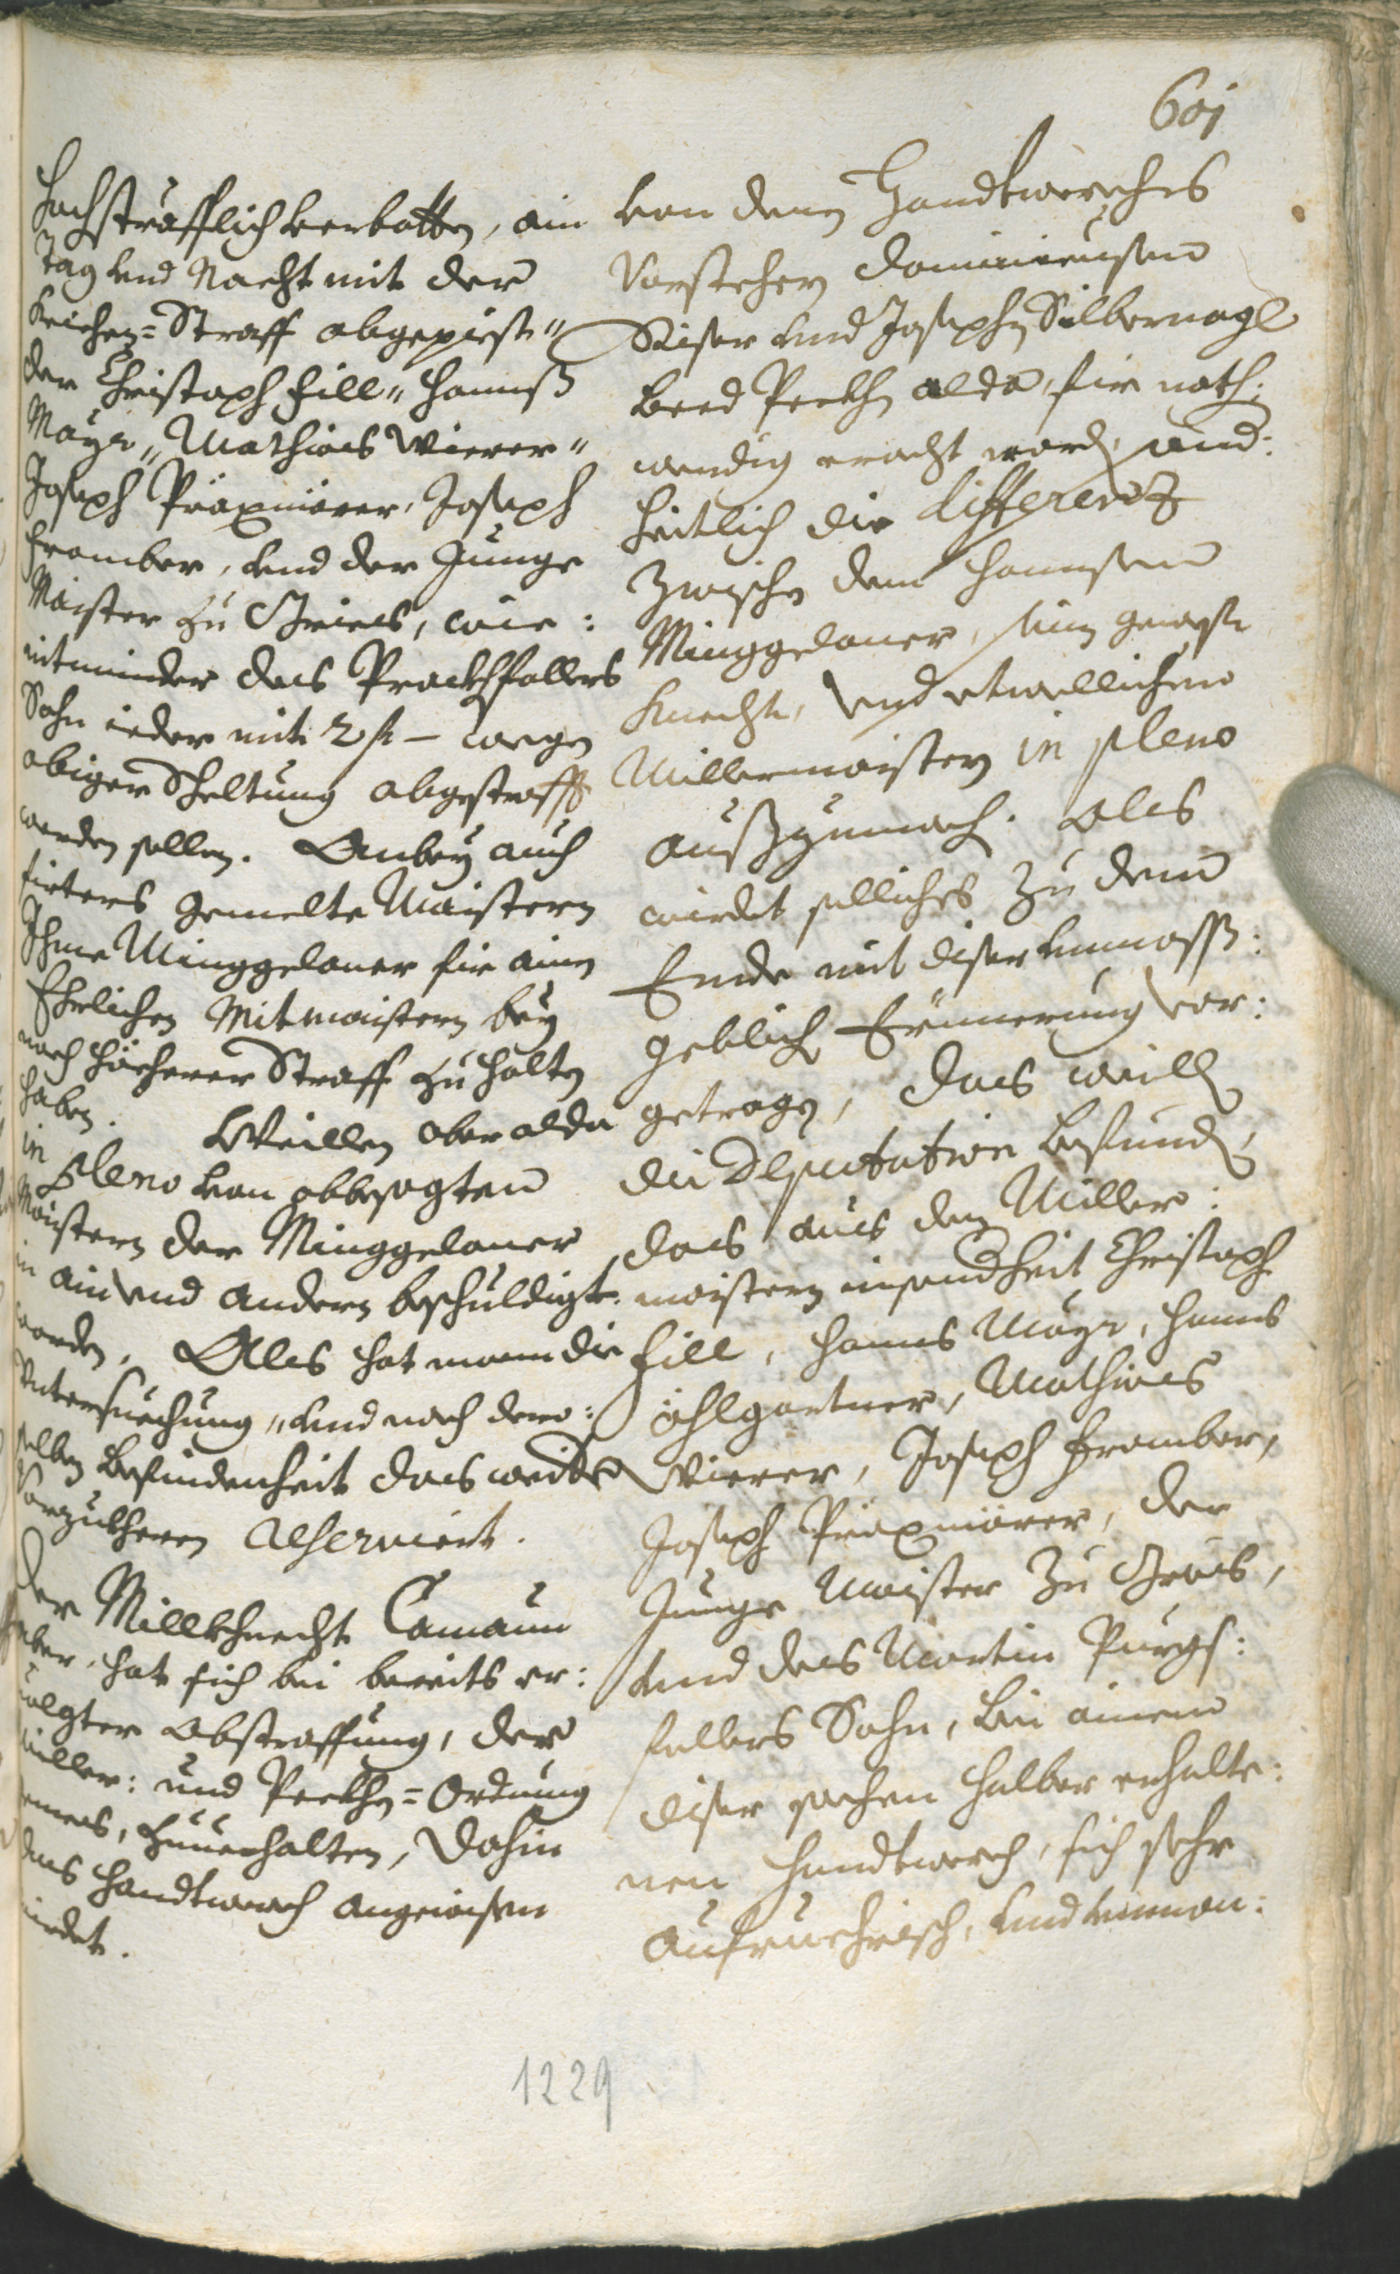 601
hochsträfflich verbotten, ain
Tag vnd Nacht mit der
Keichen=Straff abgepiest"
der Christoph Fill" Hannß
Mayr" Mathias Wierer"
Joseph Präxmärer, Joseph
Framber, vnd der Junge
Maister zu Gries, wie:
mitminder des Prackhfallers
Sohn ieder mit 2 f – wegen
obiger Scheltung abgestrafft
werden sollen. Anbey auch
firters gemelte Maistern
Ihme Minggelaner fir ainen
Ehrlichen Mitmaistern bey
noch höcherer Straff zu halten
haben. Weillen aber alda
in Pleno von obbesagten
Maistern der Minggelaner
in ain vnd andern beschuldigt
worden, Als hat mann die
Vntersuechung, vnd nach dero:
selben befindenheit das weitere
Vorzukheren reserviert.
Der Millkhnecht Camaun
aber, hat sich bei bereits er:
folgter Abstraffung, der
Miller: und Peckhen=Ordnung
gemes, zuuerhalten, dahin
das Handtwerch angewisen
wirdet.
von denen Handtwerchs
Vorstehern Dominicusen
Riser vnd Josephen Silbernagl
beed Peckhen alda, fir noth:
wendig eracht worden, und:
heitlich die differenz
zwischen dem Hannsen
Minggelaner, sein geweste
Knecht, vnd etwellichen
Millermaistern in pleno
außzumachen. Als
wirdet solliches zu dem
Ende mit diser vnmaß:
geblich Erinnerung vor:
getragen, das weillen
die Deputation befunden,
das aus den Miller:
maistern insondheit Christoph
Fill, Hanns Mayr, Hanns
öhlgartner, Mathias
Wierer, Joseph Framber,
Joseph Präxmärer, der
Junge Maister zu Gries,
vnd des Martin Purgs:
fallers Sohn, bei ainem
diser sachen halber erhalte:
nen Handtwerch, sich sehr
aufruehrisch, vnd vnman:
1229